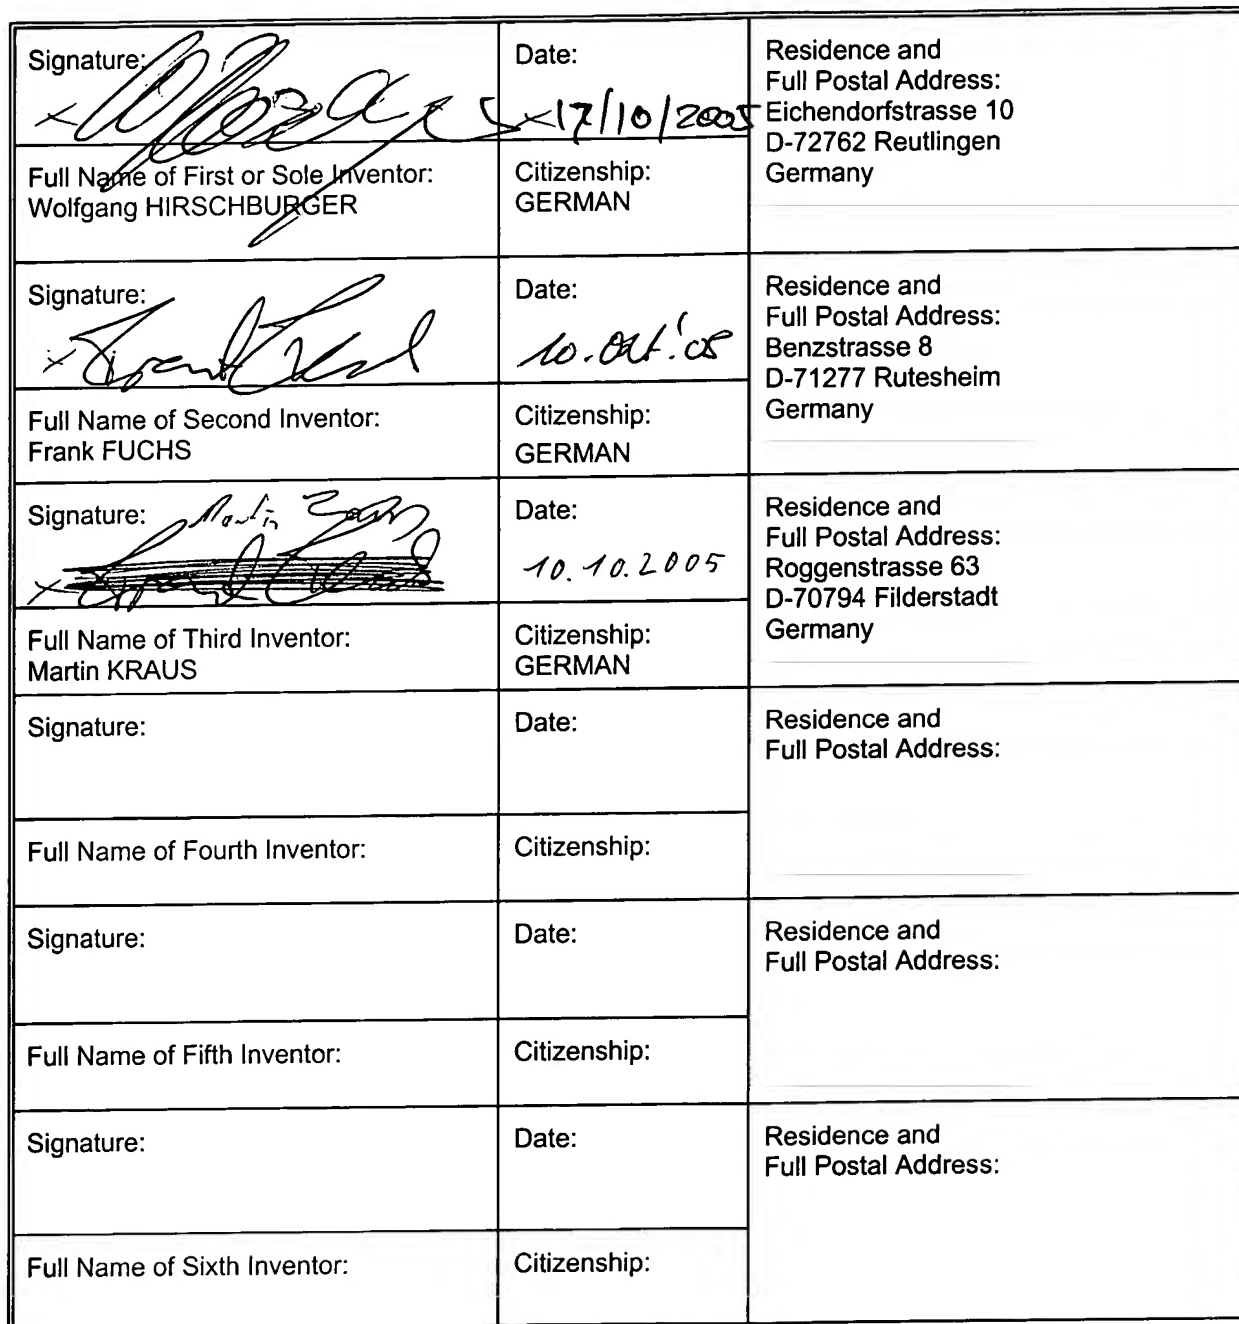 Signature:
Date:
Residence and
Full Postal Address:
Eichendorfstrasse 10
D-72762 Reutlingen
Germany
×17/10/2005
Full Name of First or Sole Inventor:
Wolfgang HIRSCHBURGER
Citizenship:
GERMAN
Signature:
Date:
Residence and
Full Postal Address:
Benzstrasse 8
D-71277 Rutesheim
Germany
10. Okt. '05
Full Name of Second Inventor:
Frank FUCHS
Citizenship:
GERMAN
Signature:
Martin
Date:
10.10.2005
Residence and
Full Postal Address:
Roggenstrasse 63
D-70794 Filderstadt
Germany
Full Name of Third Inventor:
Martin KRAUS
Citizenship:
GERMAN
Signature:
Date:
Residence and
Full Postal Address:
Full Name of Fourth Inventor:
Citizenship:
Signature:
Date:
Residence and
Full Postal Address:
Full Name of Fifth Inventor:
Citizenship:
Signature:
Date:
Residence and
Full Postal Address:
Full Name of Sixth Inventor:
Citizenship: